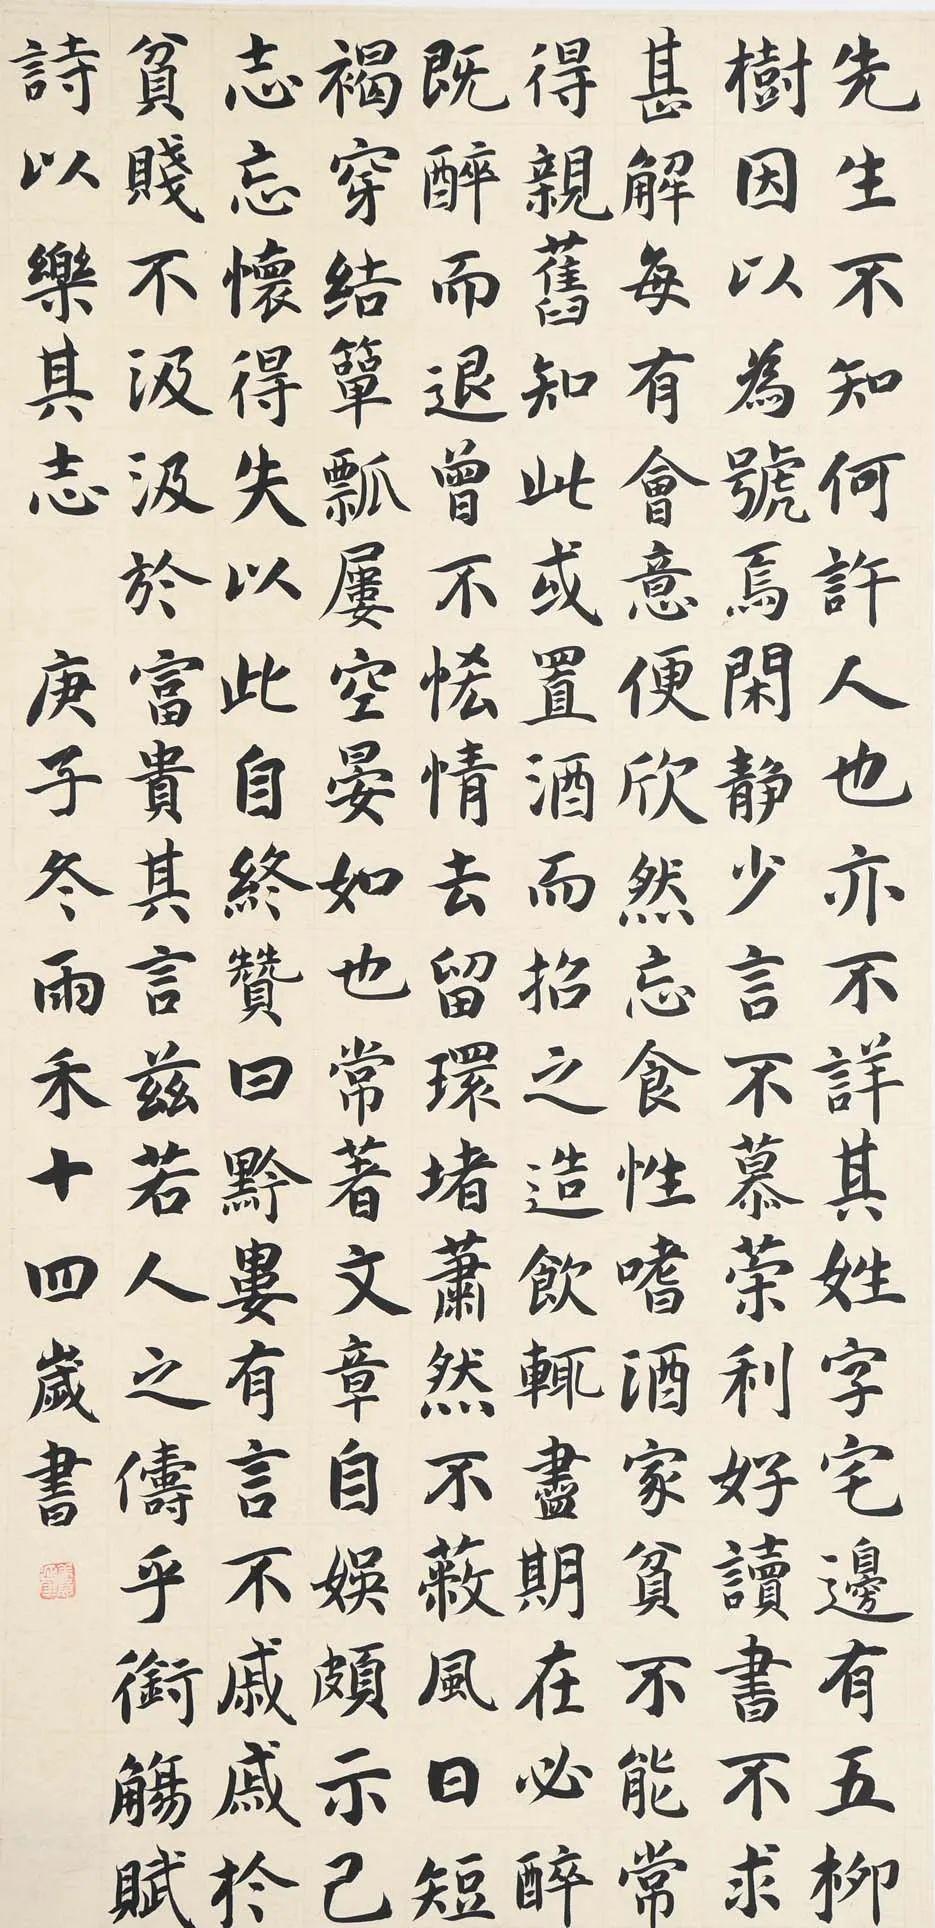 先生不知何許人也亦不詳其姓字宅邊有五柳
樹因以為號焉閑静少言不慕荣利好讀書不求
甚解每有會意便欣然忘食性嗜酒家貧不能常
得親舊知此或置酒而招之造飲輒盡期在必醉
既醉而退曾不恡情去留環堵蕭然不蔽風日短
褐穿結簞瓢屢空晏如也常著文章自娱頗示己
志忘懷得失以此自終贊曰黔婁有言不戚戚於
貧賤不汲汲於富貴其言兹若人之儔乎銜觴賦
詩以樂其志 庚子冬雨禾十四歲書